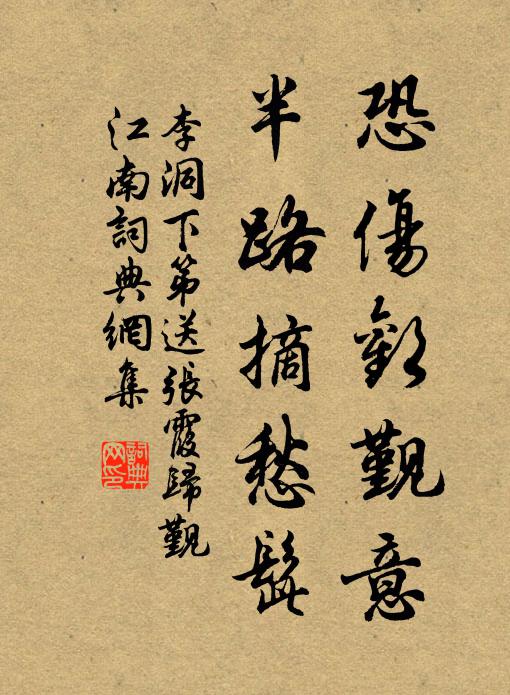 恐傷歡覲意
半路摘愁髭
李洞下第送張霞歸覲
江南詞典網集
詞典
网印